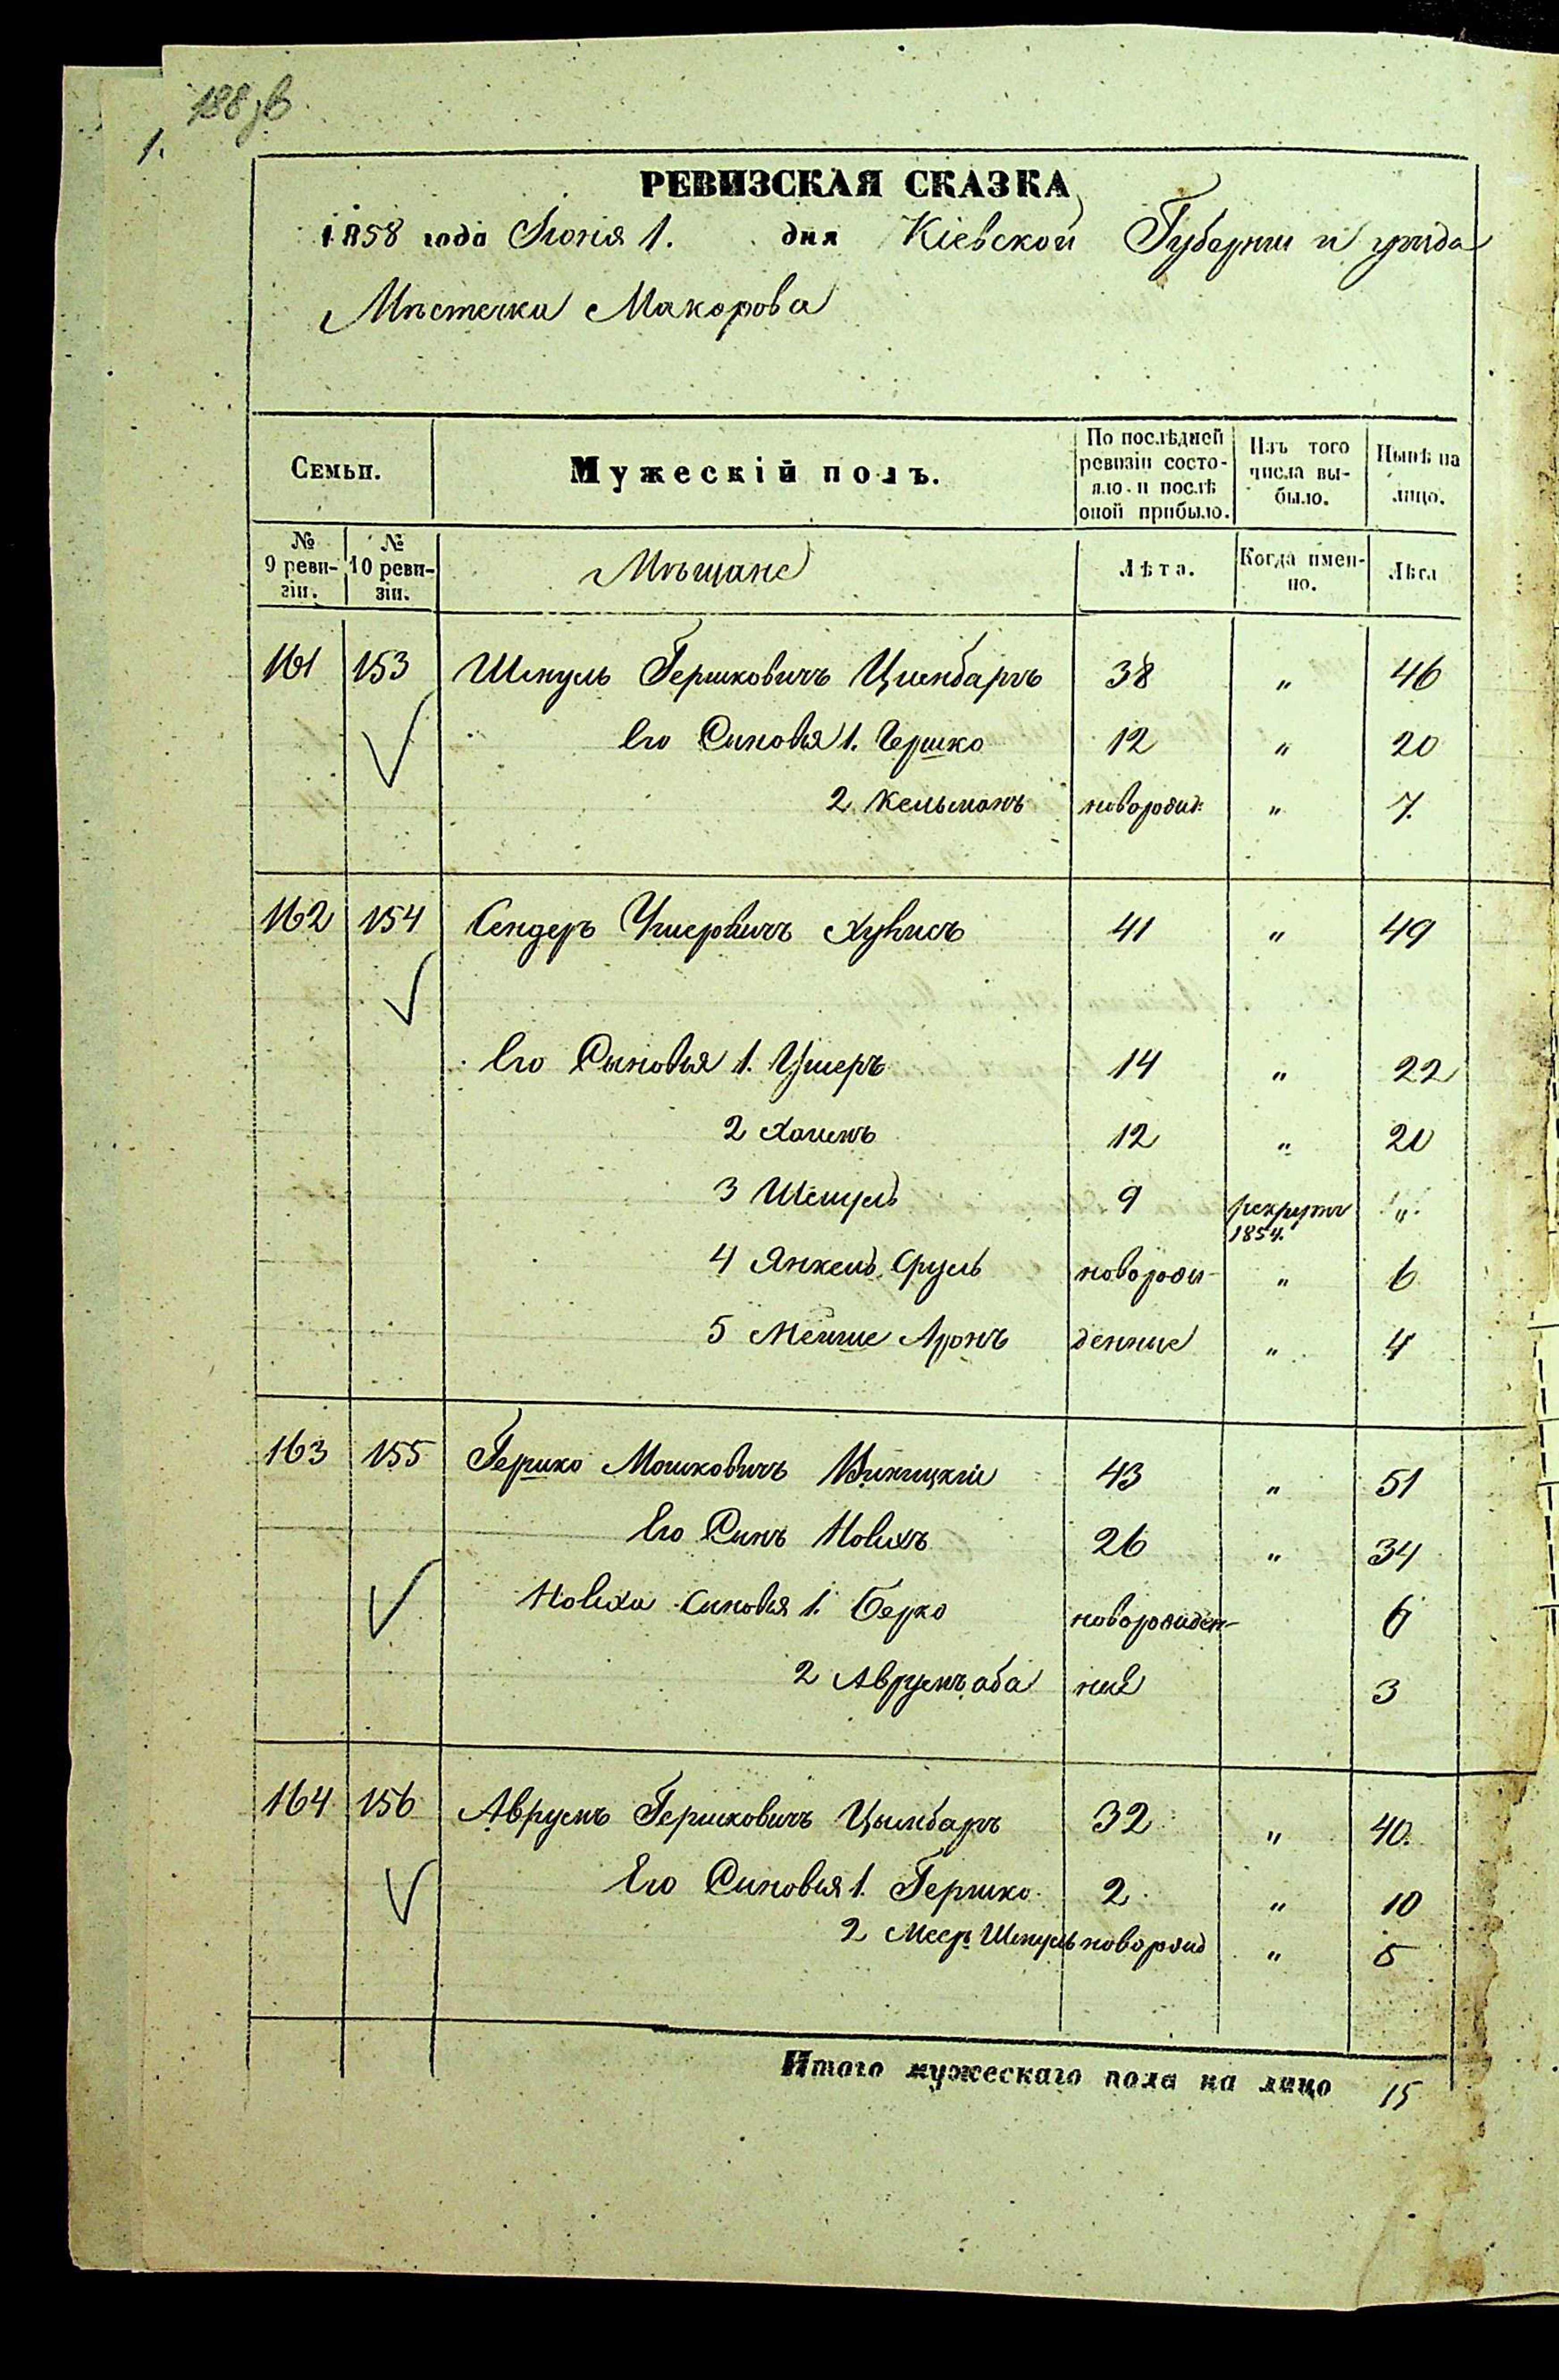 188 зв
1.
РЕВИЗСКАЯ СКАЗКА
1858 года Іюня 1. дня Кіевской Губерніи и уѣзда
Мѣстечка Макарова
Семьи. Мужескій полъ. По послѣдней ревизіи состояло и послѣ оной прибыло. Изъ того числа выбыло. Нынѣ на лицо.
№ 9 ревизіи. № 10 ревизіи. Мѣщане Лѣта. Когда именно. Лѣта
161 153 Шмуль Гершковичъ Цимбаръ 38 " 46
Его Синовья 1. Гершко 12 " 20
2 Кельманъ новорожд: " 7.
162 154 Сендеръ Ушеровичъ 41 " 49
Его Сыновья 1. Ушеръ 14 " 22
2 Хаимъ 12 " 20
3 Шмуль 9 рекрутъ 1854. "
4 Янкель Сруль новорож- " 6
5 Мейше Аронъ денние " 4
163 155 Гершко Мошковичъ Виницкій 43 " 51
Его Синъ 26 " 34
Синовья 1. Берко новорожден- 6
2 Аврумъ аба ние 3
164 156 Аврумъ Гершковичъ Цымбаръ 32 " 40.
Его Синовья 1. Гершко 2 " 10
2 Меер Шмуль новорожд " 5
Итого мужескаго пола на лицо 15